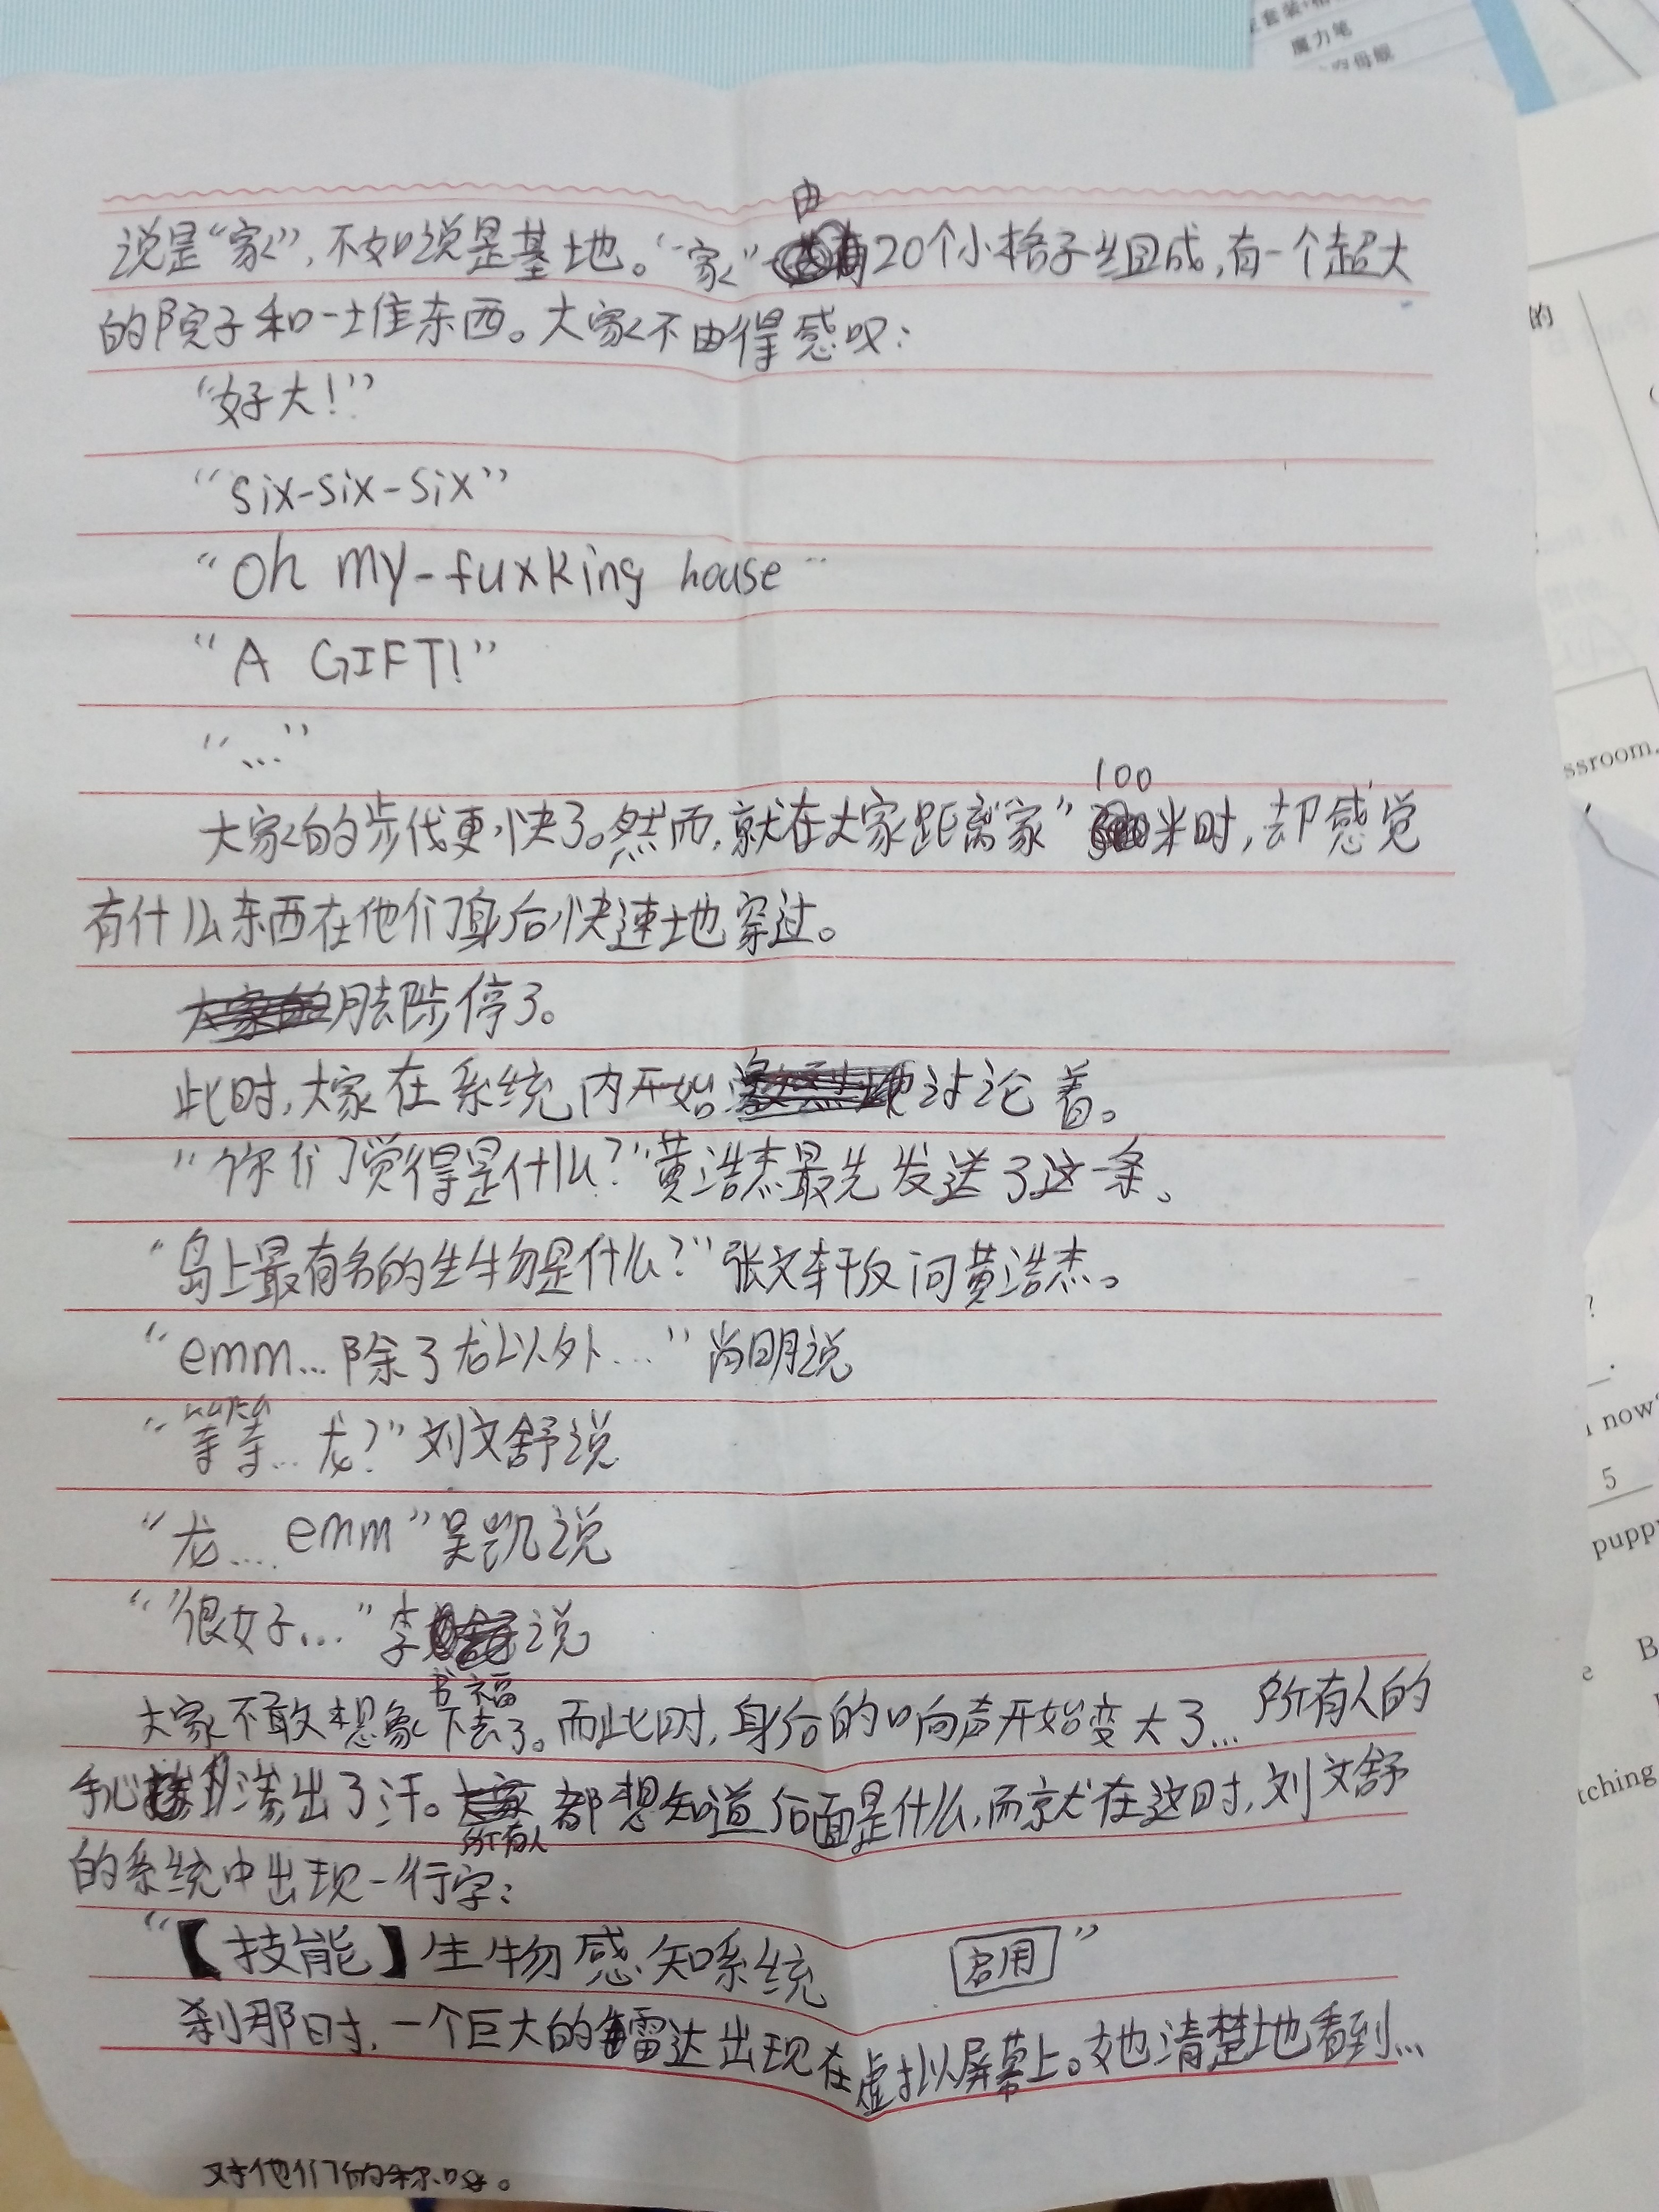 套装
魔力笔
空母舰
说是“家”,不如说是基地。“家”由20个小格子组成,有一个超大
的院子和一堆东西。大家不由得感叹:
“好大!”
“six-six-six”
“Oh my-fuxking house”
“A GIFT!”
“...”
大家的步伐更快了。然而,就在大家距离家”100米时,却感觉
有什么东西在他们身后快速地穿过。
脚步停了。
此时,大家在系统内开始讨论着。
“你们觉得是什么?”黄浩杰最先发送了这一条。
“岛上最有名的生物是什么?”张文轩反问黄浩杰。
“emm...除了龙以外...”尚明说
“等等...龙?”刘文舒说
“龙.... emm”吴凯说
“很好...”李书福说
大家不敢想象下去了。而此时,身后的响声开始变大了...所有人的
手心渗出了汗。所有人都想知道后面是什么,而就在这时,刘文舒
的系统中出现一行字:
“【技能】生物感知系统 启用”
刹那时,一个巨大的雷达出现在虚拟屏幕上。她清楚地看到...
对他们的称呼。
的
ssroom.
?
now
5
pupp
B
e
tching